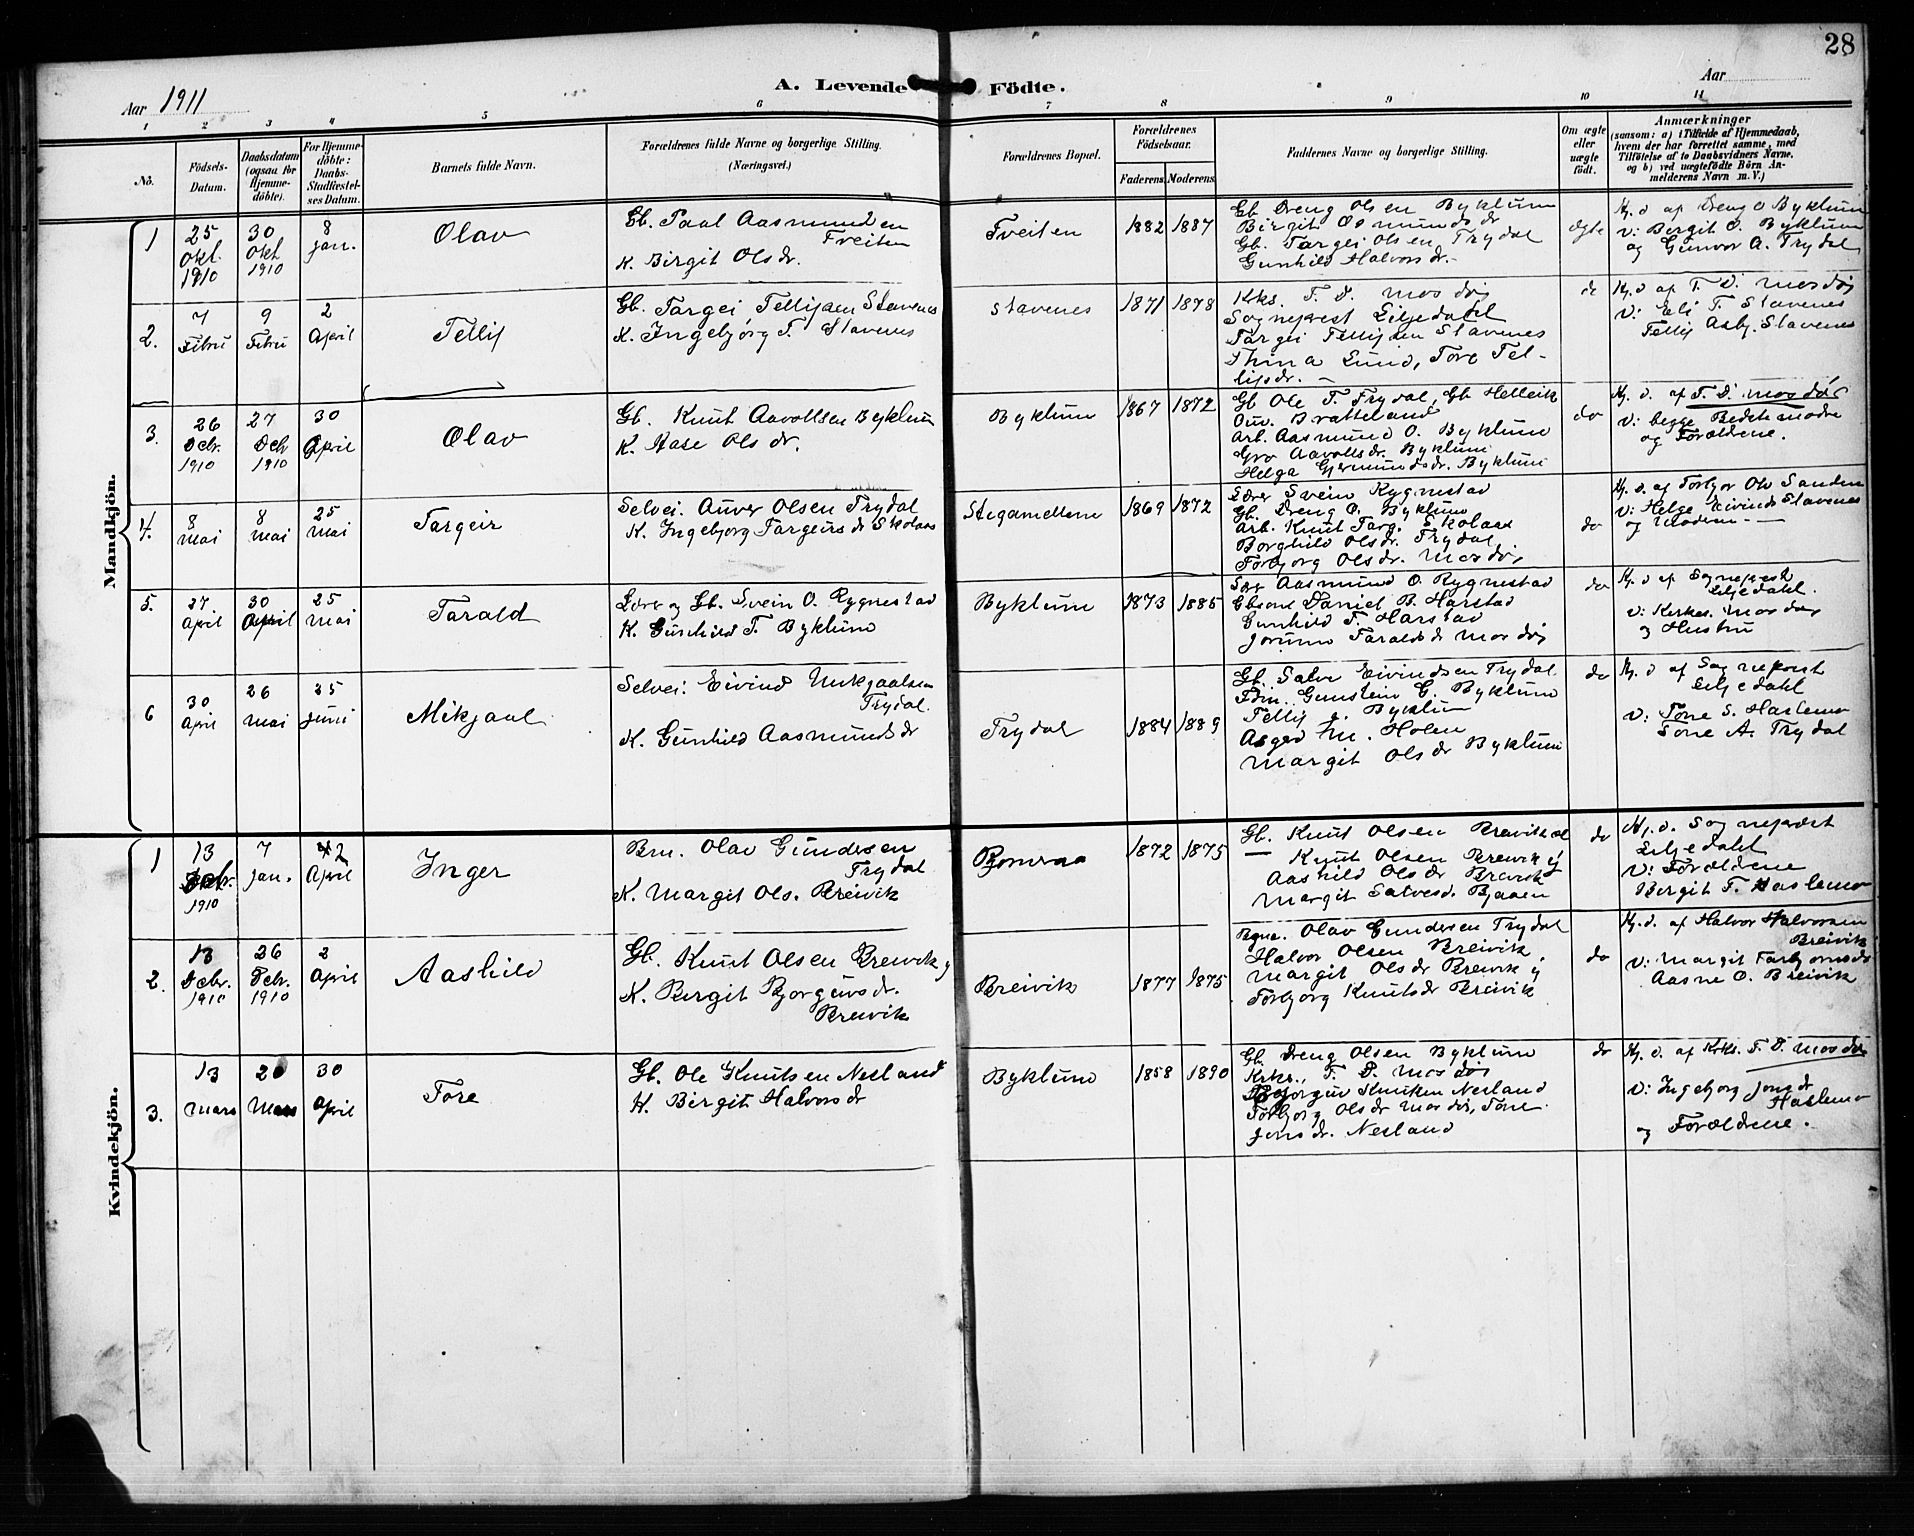 28
Aar 1911
A. Levende Födte.
Aar
1 2 3 4 5 6 7 8 9 10 11
No.
Födsels-
Datum.
Daabsdatum
(ogsaa for
Hjemme-
döbte).
For Hjemme-
döbte:
Daabs-
Stadfæstel-
ses Datum.
Barnets fulde Navn.
Forældrenes fulde Navne og borgerlige Stilling.
(Næringsvei.)
Forældrenes Bopæl.
Forældrenes
Födselsaar.
Faderens. Moderens.
Faddernes Navne og borgerlige Stilling.
Om ægte
eller
uægte
födt.
Anmærkninger
(saasom: a) i Tilfælde af Hjemmedaab,
hvem der har forrettet samme, med
Tilföielse af to Daabsvidners Navne,
og b) ved uægtefödte Börn An-
melderens Navn m. V.)
Mandkjön.
1
25
Okt.
1910
30
Okt
1910
8
jan.
Olav
Gb. Paal Aasmundsen
Tveiten
K. Birgit Olsdr.
Tveiten
1882 1887
Gb. Dreng Olsen Byklum
Birgit Osmundsdr
Gb. Targei Olsen Trydal
Gunhild Halvorsdr.
ægte
Hj. d af Dreng O Byklum
v: Bergit O. Byklum
og Gunvor A. Trydal
2.
7
Febru
9
Febru
2
April
Tellij
Gb. Targei Tellijsen Stavenes
K. Ingebjørg T. Stavenes
Stavenes
1871 1878
Kks. T. D. Mosdøj
Sogneprest Liljedahl
Targei Tellijsen Stavenes
Thina Lund, Tore Tel-
lijsdr. —
do
Hj. d af T. D. Mosdøj
v: Eli T. Stavenes
Tellij Asbj. Stavenes
3.
26
Decbr.
1910
27
Dcb
1910
30
April
Olav
Gb. Knut Aavoltsen Byklum
K. Aase Olsdr.
Byklum
1867 1872
Gb Ole T. Trydal, Gb Helleik
Ouv. Bratteland
Arb. Aasmund O. Byklum
Gro Aavoltsdr. Byklum
Helga Gjermundsdr. Byklum
do
Hj. d. af T. D. Mosdøj
v: begge Bedstemødre
og Forældrene.
4.
8
Mai
8
Mai
25
Mai
Targeir
Selvei. Auver Olsen Trydal
K. Ingeborg Targeirsdr Skolaas
Stegamellene
1869 1872
Lærer Svein Rygnestad
Gb. Dreng O. Byklum
Arb. Knut Targ. Skolaas
Borghild Olsdr. Trydal
Torbjorg Olsdr. Mosdøj
do
Hj. d. af Torbjor Olv Sanden
v: Helge Eivinds Stavenes
og Moderen —
5.
27
April
30
April
25
Mai
Tarald
Lærer og Gb. Svein O. Rygnestad
K. Gunhild T. Byklum
Byklum
1873 1885
Lærer Aasmund O. Rygnestad
Gbsøn Daniel B. Harstad
Gunhild T. Harstad
Jorunn Taraldsdr Mosdøj
do
Hj. d af Sogneprest
Liljedahl.
v: Kirkes. Mosdøj
og Hustru
6
30
April
26
Mai
25
Juni
Mikjaal
Selvei. Eivind Mikjaalsen
Trydal.
K. Gunhild Aasmundsdr
Trydal
1884 1889
Gb. Salve Eivindsen Trydal
Gunstein G. Byklum
Tellij G. Byklum
Asgerd M. Holen
Margit Olsdr Byklum
do
Hj. d af Sogneprest
Liljedahl
v: Tone S. Haslemo
Tone A. Trydal
Kvindekjön.
1
13
Decbr.
1910
7
jan.
2
April
Inger
Brn. Olav Gundersen
Trydal
K. Margit Ols. Breivik
1872 1875
Gb. Knut Olsen Breivik æl
— Knut Olsen Breivik y
Aashild Olsdr Breivik
Margit Salvesd. Bjaaen
do
Hj. d. Sogneprest
Liljedahl
v: Forældrene
Bergit T. Haslemo
2.
13
Decbr.
1910
26
Decbr.
1910
2
April
Aashild
Gb. Knut Olsen Breivik y
K. Bergit Bjorgeivsdr.
Breivik
Breivik
1877 1875
Olav Gundersen Trydal
Halvor Olsen Breivik,
Margit Olsdr Breivik y
Torbjorg Knutsdr Breivik
do
Hj. d. af Halvor Halvorsen
Breivik
v: Margit Torbjornsdr
Aasne O. Breivik
3.
13
Mars
20
Mars
30
April
Tore
Gb. Ole Knutsen Nesland
H. Birgit Halvorsdr
Byklum
1858 1890
Gb. Dreng Olsen Byklum
Krks. T. D. Mosdøj
Bjorguv Knutsen Nesland
Torbjorg Olsdr Mosdøj, Tone
Jonsdr. Nesland
do
Hj. d. af Krks. T. D. Mosdøj
v: Ingeborg Jonsdr
Haslemo
og Forældrene.